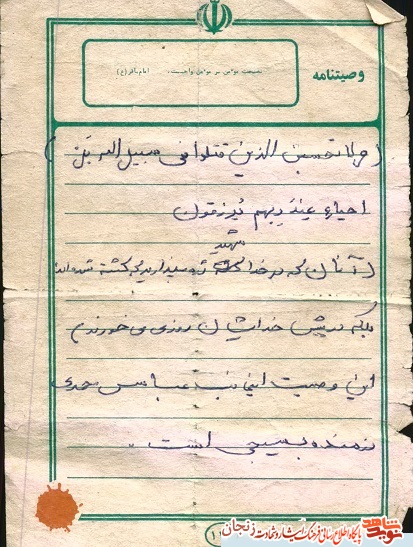 وصیتنامه
نصیحت مؤمن بر مؤمن واجبست. امام باقر(ع)
(و لا تحسبن الذین قتلوا فی سبیل الله بل)
احیاء عند ربهم یرزقون
شهید
(آنان که در خدا شده نپندارید که کشته شده اند
بلکه در پیش خدایشان روزی می خورند)
این وصیت اینجانب عباس
رزمنده بسیجی است.
پایگاه اطلاع رسانی فرهنگ ایثار و شهادت زنجان
نوید شاهد